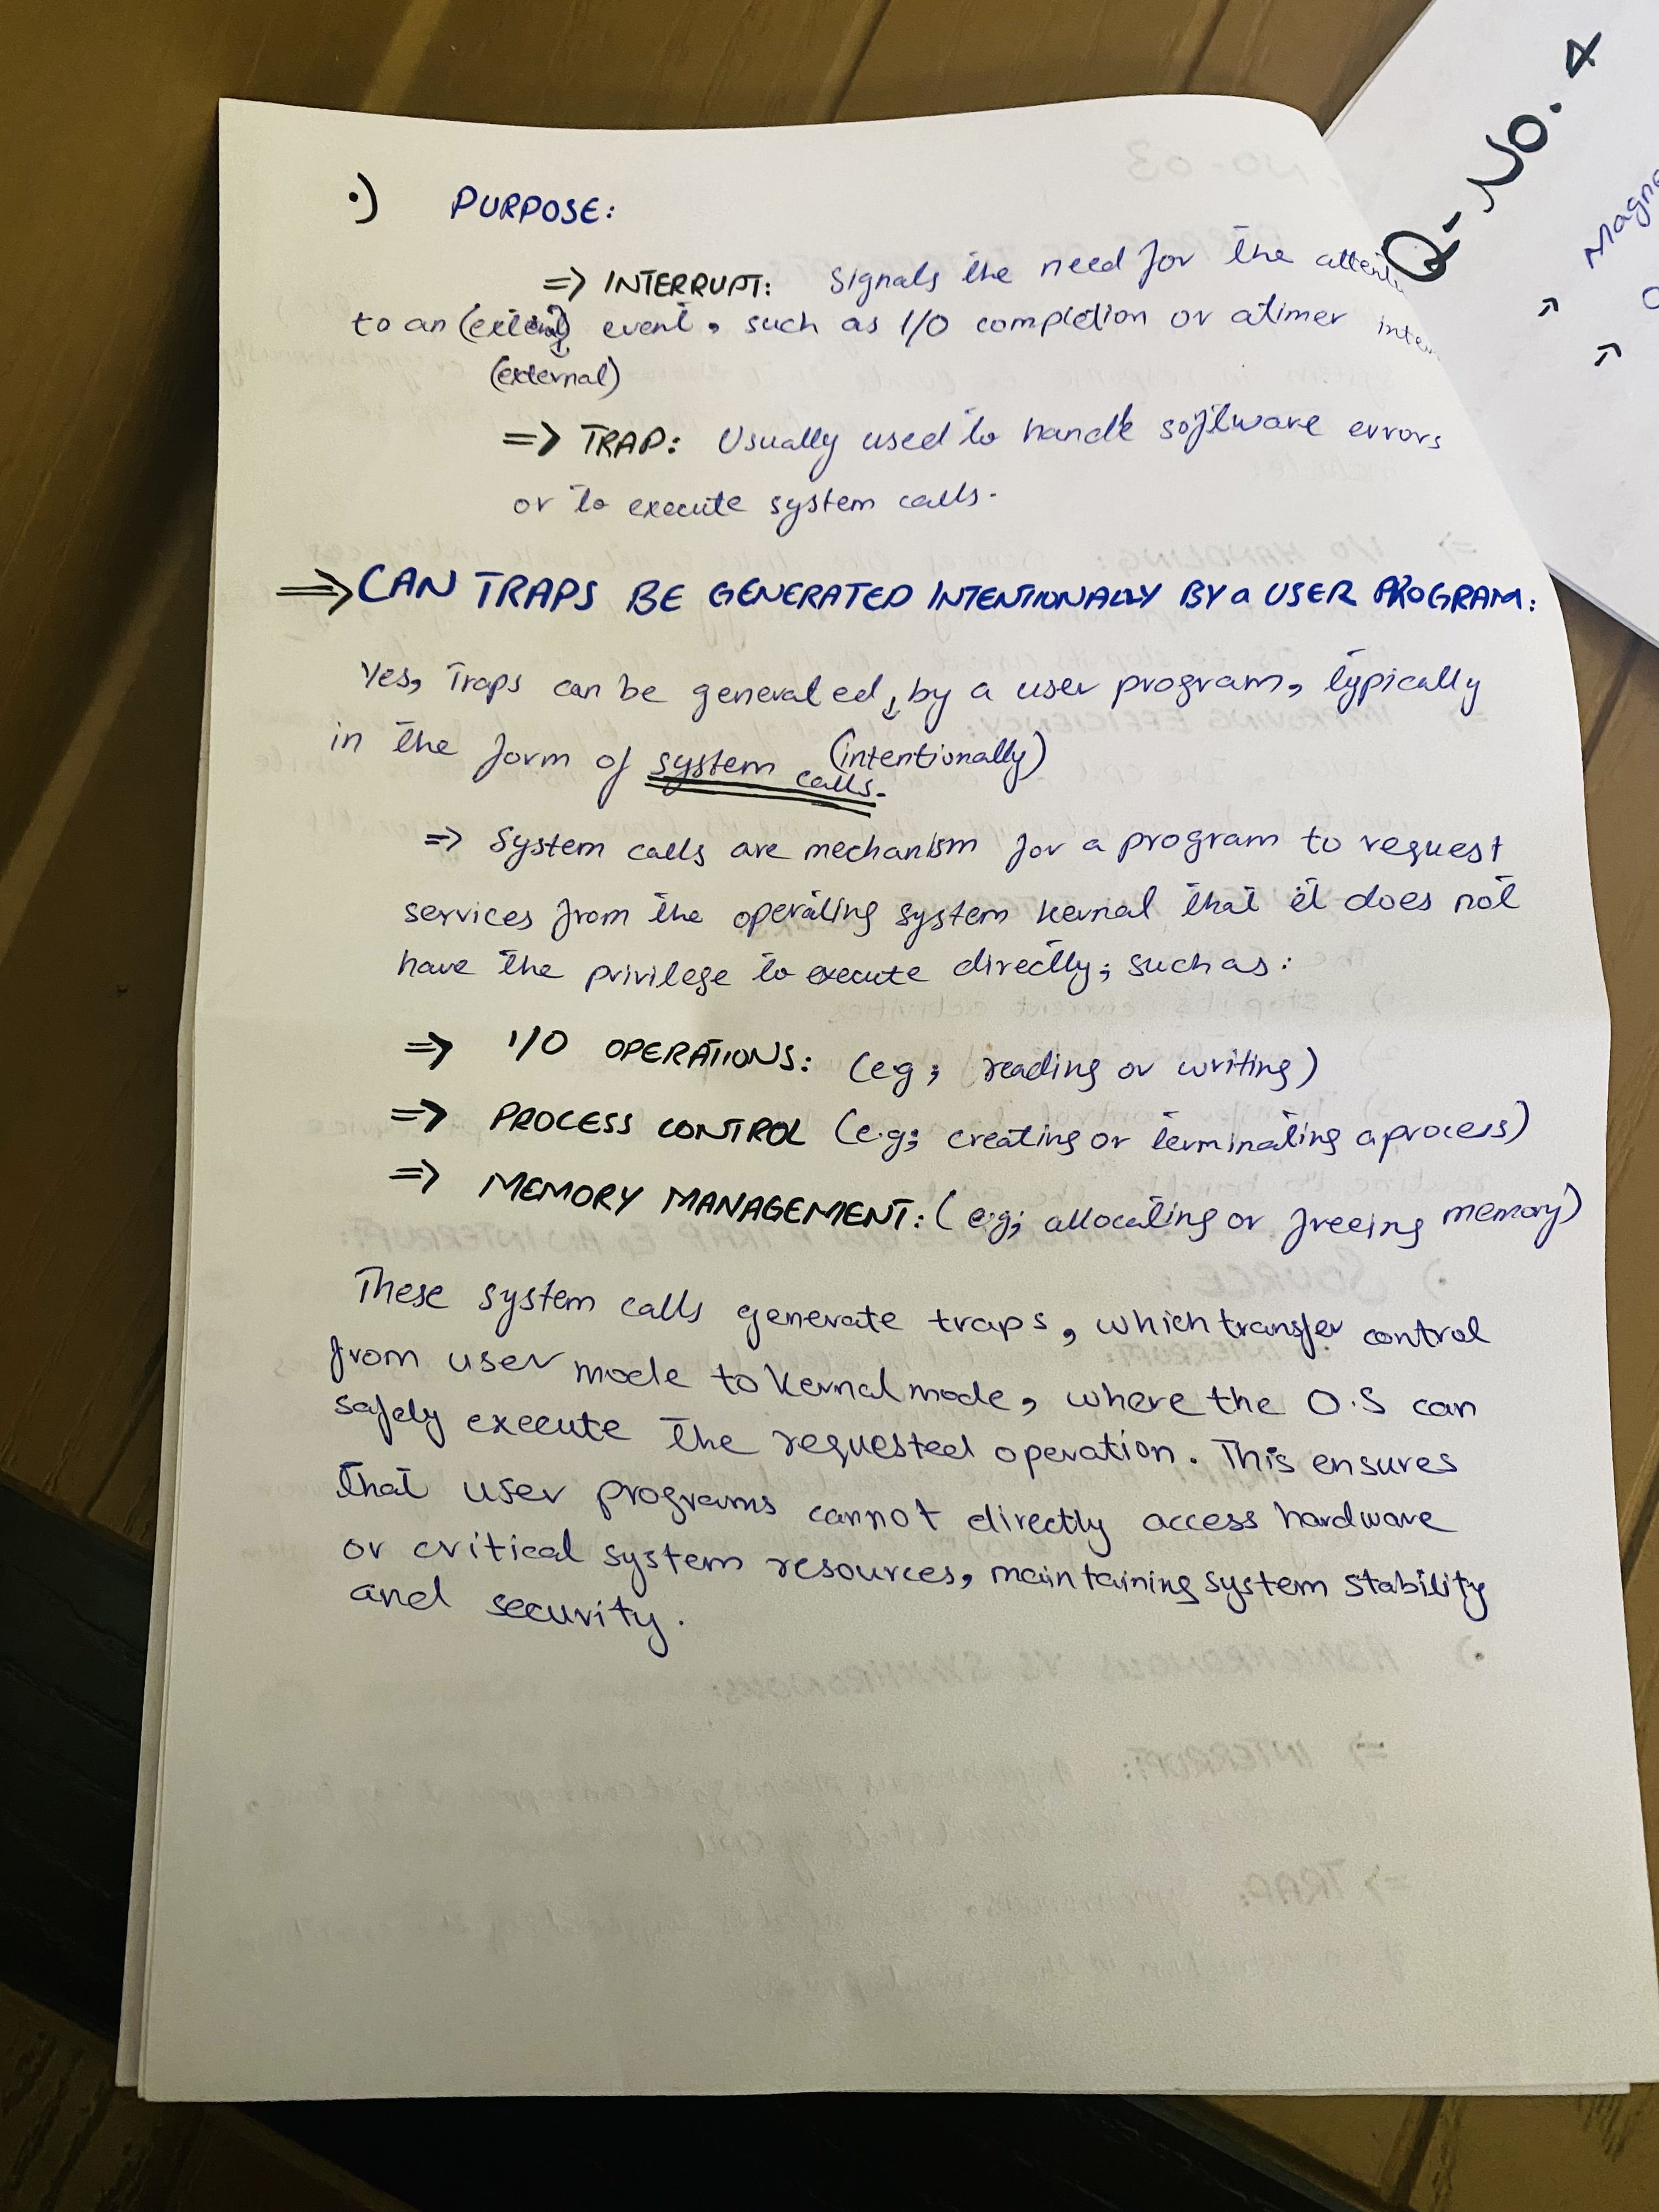 •) PURPOSE:
=> INTERRUPT: Signals the need for the
to an (external) event, such as I/O completion or a timer
(external)
=> TRAP: Usually used to handle software errors
or to execute system calls.
=> CAN TRAPS BE GENERATED INTENTIONALLY BY a USER PROGRAM:
Yes, Traps can be generated, by a user program, typically
in the form of system calls. (intentionally)
=> System calls are mechanism for a program to request
services from the operating system kernal that it does not
have the privilege to execute directly; such as:
=> I/O OPERATIONS: (eg; reading or writing)
=> PROCESS CONTROL (e.g; creating or terminating a process)
=> MEMORY MANAGEMENT: (e.g; allocating or freeing memory)
These system calls generate traps, which transfer control
from user mode to kernal mode, where the O.S can
safely execute the requested operation. This ensures
that user programs cannot directly access hardware
or critical system resources, maintaining system stability
and security.
Q-No. 4